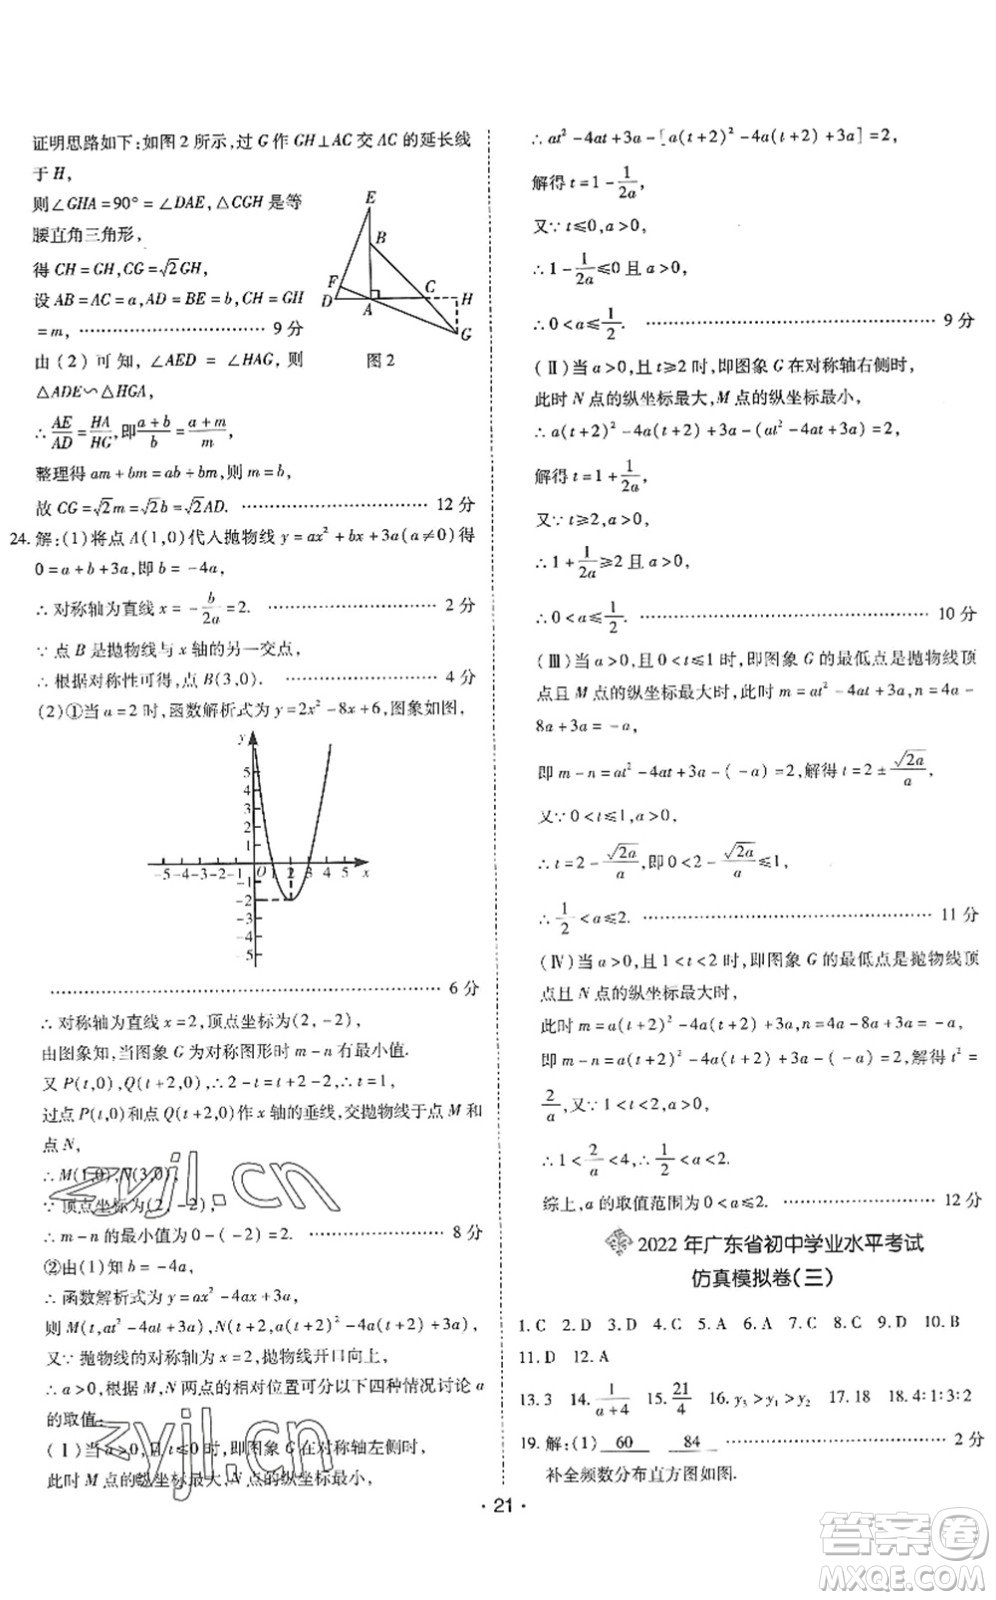 证明思路如下:如图 2 所示,过 G 作 GH⊥AC 交 AC 的延长线
于 H,
则∠GHA=90°=∠DAE,△CGH 是等
腰直角三角形,
得 CH=GH,CG=√2GH,
设 AB=AC=a,AD=BE=b,CH=GH
=m, ……………… 9 分
由 (2) 可 知, ∠AED = ∠HAG, 则
△ADE∽△HGA,
∴AE/AD=HA/HG,即(a+b)/b=(a+m)/m,
整理得 am+bm=ab+bm,则 m=b,
故 CG=√2m=√2b=√2AD. ……………… 12 分
E
B
F
D
A
C
H
G
图 2
24. 解:(1)将点 A(1,0)代入抛物线 y=ax²+bx+3a(a≠0)得
0=a+b+3a,即 b=-4a,
∴对称轴为直线 x=-b/2a=2. ……………… 2 分
∵点 B 是抛物线与 x 轴的另一交点,
∴根据对称性可得,点 B(3,0). ……………… 4 分
(2)①当 a=2 时,函数解析式为 y=2x²-8x+6,图象如图,
y
5
4
3
2
1
-5 -4 -3 -2 -1 O 1 2 3 4 5 x
-1
-2
-3
-4
-5
……………… 6 分
∴对称轴为直线 x=2,顶点坐标为(2,-2),
由图象知,当图象 G 为对称图形时 m-n 有最小值.
又 P(t,0),Q(t+2,0),∴2-t=t+2-2,∴t=1,
过点 P(t,0)和点 Q(t+2,0)作 x 轴的垂线,交抛物线于点 M 和
点 N,
∴M(1,0),N(3,0),
∵顶点坐标为(2,-2),
∴m-n 的最小值为 0-(-2)=2. ……………… 8 分
②由(1)知 b=-4a,
∴函数解析式为 y=ax²-4ax+3a,
则 M(t,at²-4at+3a),N(t+2,a(t+2)²-4a(t+2)+3a),
又∵抛物线的对称轴为 x=2,抛物线开口向上,
∴a>0,根据 M,N 两点的相对位置可分以下四种情况讨论 a
的取值:
(Ⅰ)当 a>0,且 t≤0 时,即图象 G 在对称轴左侧时,
此时 M 点的纵坐标最大,N 点的纵坐标最小,
∴at²-4at+3a-[a(t+2)²-4a(t+2)+3a]=2,
解得 t=1-1/2a,
又∵t≤0,a>0,
∴1-1/2a≤0 且 a>0,
∴0<a≤1/2. ……………… 9 分
(Ⅱ)当 a>0,且 t≥2 时,即图象 G 在对称轴右侧时,
此时 N 点的纵坐标最大,M 点的纵坐标最小,
∴a(t+2)²-4a(t+2)+3a-(at²-4at+3a)=2,
解得 t=1+1/2a,
又∵t≥2,a>0,
∴1+1/2a≥2 且 a>0,
∴0<a≤1/2. ……………… 10 分
(Ⅲ)当 a>0,且 0<t≤1 时,即图象 G 的最低点是抛物线顶
点且 M 点的纵坐标最大时,此时 m=at²-4at+3a,n=4a-
8a+3a=-a,
即 m-n=at²-4at+3a-(-a)=2,解得 t=2±√2a/a,
又∵0<t≤1,a>0,
∴t=2-√2a/a,即 0<2-√2a/a≤1,
∴1/2<a≤2. ……………… 11 分
(Ⅳ)当 a>0,且 1<t<2 时,即图象 G 的最低点是抛物线顶
点且 N 点的纵坐标最大时,
此时 m=a(t+2)²-4a(t+2)+3a,n=4a-8a+3a=-a,
即 m-n=a(t+2)²-4a(t+2)+3a-(-a)=2,解得 t²=
2/a,又∵1<t<2,a>0,
∴1<2/a<4,∴1/2<a<2.
综上,a 的取值范围为 0<a≤2. ……………… 12 分
2022 年广东省初中学业水平考试
仿真模拟卷(三)
1. C 2. D 3. D 4. C 5. A 6. D 7. C 8. C 9. D 10. B
11. D 12. A
13. 3 14. 1/(a+4) 15. 21/4 16. y₃>y₁>y₂ 17. 18 18. 4∶1∶3∶2
19. 解:(1) 60 84 ……………… 2 分
补全频数分布直方图如图.
· 21 ·
zyjl.cn
zyjl.cn
答案圈
MXQE.COM